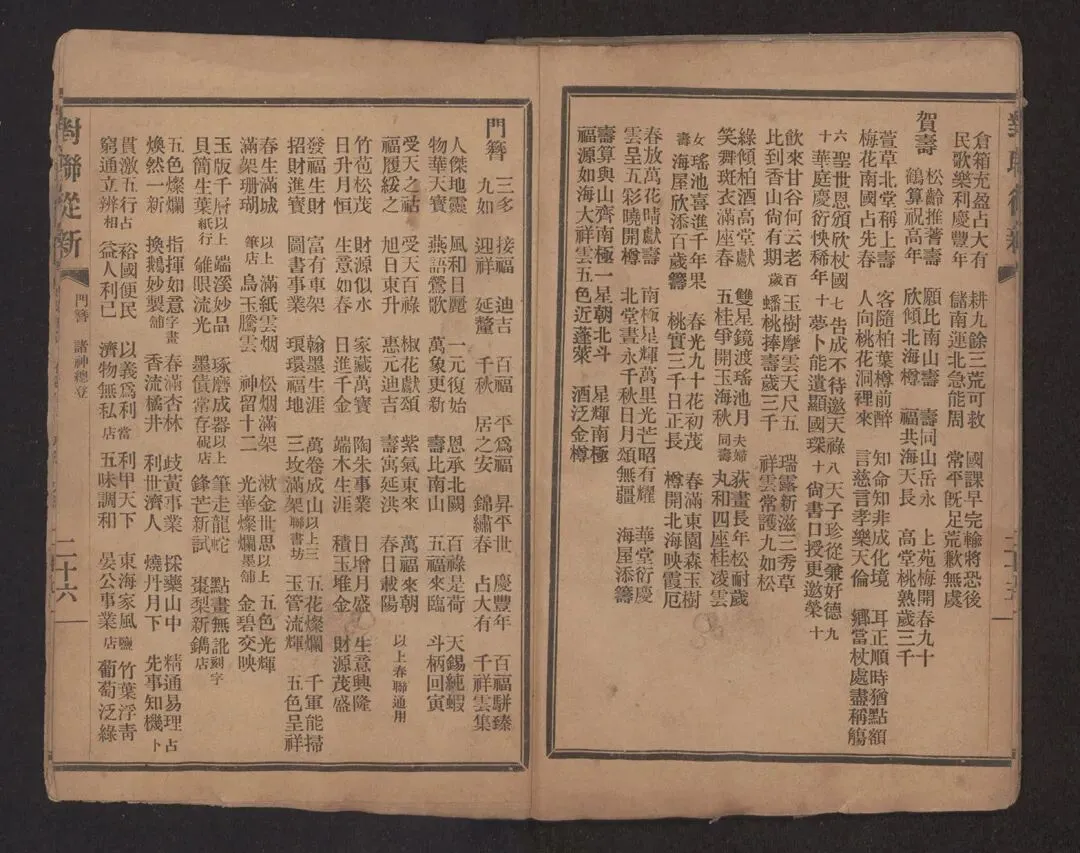 倉箱充盈占大有 耕九餘三荒可救 國課早完輸將恐後
民歌樂利慶豐年 儲南運北急能周 常平旣足荒歉無虞
賀壽 松齡推耆壽 願比南山壽 壽同山岳永 上苑梅開春九十
鶴算祝高年 欣傾北海樽 福共海天長 高堂桃熟歲三千
萱草北堂稱上壽 客隨柏葉樽前醉 知命知非成化境 耳正順時猶點額
梅花南國占先春 人向桃花洞裡來 言慈言孝樂天倫 鄉當杖處盡稱觴
六 聖世恩頒欣杖國 七 告成不待邀天祿 八 天子珍從兼好德 九
十 華庭慶衍怏稀年 十 夢卜能遺顯國琛 十 尙書口授更邀榮 十
飲來甘谷何云老 百 玉樹摩雲天尺五 瑞露新滋三秀草
比到香山尙有期 歲 蟠桃捧壽歲三千 祥雲常護九如松
綠傾柏酒高堂獻 雙星鏡渡瑤池月 夫婦 荻畫長年松耐歲
笑舞斑衣滿座春 五桂爭開玉海秋 同壽 丸和四座桂凌雲
女 瑤池喜進千年果 春光九十花初茂 春滿東園森玉樹
壽 海屋欣添百歲籌 桃實三千日正長 樽開北海映霞卮
春放萬花晴獻壽 南極星輝萬里光芒昭有耀 華堂衍慶
雲呈五彩曉開樽 北堂晝永千秋日月頌無疆 海屋添籌
壽算與山齊南極一星朝北斗 星輝南極
福源如海大祥雲五色近蓬萊 酒泛金樽
門簪 三多 接福 迪吉 百福 平爲福 昇平世 慶豐年 百福駢臻
九如 迎祥 延釐 千秋 居之安 錦繡春 占大有 千祥雲集
人傑地靈 風和日麗 一元復始 恩承北國 百祿是荷 天錫純蝦
物華天寶 燕語鶯歌 萬象更新 壽比南山 五福來臨 斗柄回寅
受天之祜 受天百祿 椒花獻頌 紫氣東來 萬福來朝 以上春聯通用
福履綏之 旭日東升 惠元迪吉 壽寓延洪 春日載陽
竹苞松茂 財源似水 家藏萬寶 陶朱事業 日增月盛 生意興隆
日升月恒 生意如春 日進千金 端木生涯 積玉堆金 財源茂盛
發福生財 富有車架 翰墨生涯 萬卷成山 以上三 五花燦爛 千軍能掃
招財進寶 圖書事業 琅環福地 三坟滿架 聯書坊 玉管流輝 五色呈祥
春生滿城 以上 滿紙雲烟 松烟滿架 漱金世思 以上 五色光輝
滿架珊瑚 筆店 烏玉騰雲 神留十二 光華燦爛 墨舖 金碧交映
玉版千層 以上 端溪妙品 琢磨成器 以上 筆走龍蛇 點畫無訛 刻字
貝簡生葉 紙行 雊眼流光 墨債常存 硯店 鋒芒新試 棗梨新鐫 店
五色燦爛 指揮如意 字畫 春滿杏林 歧黃事業 採藥山中 精通易理 占
煥然一新 換鵝妙製 舖 香流橘井 利世濟人 燒丹月下 先事知機 卜
貫激五行 占 裕國便民 以義爲利 當 利甲天下 東海家風 鹽 竹葉浮青
窮通立辨 相 益人利已 濟物無私 店 五味調和 晏公事業 店 葡萄泛綠
對聯從新 門簪 諸神總立 二十六